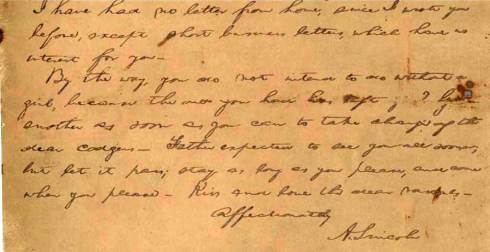 I have had no letter from home, since I wrote you
before, except short business letters, which have no
interest for you—
By the way, you do not intend to do without a
girl, because the one you had has left you? Get
another as soon as you can to take charge of the
dear codgers— Father expected to see you all sooner;
but let it pass; stay as long as you please, and come
when you please— Kiss and love the dear rascals—
Affectionately
A. Lincoln